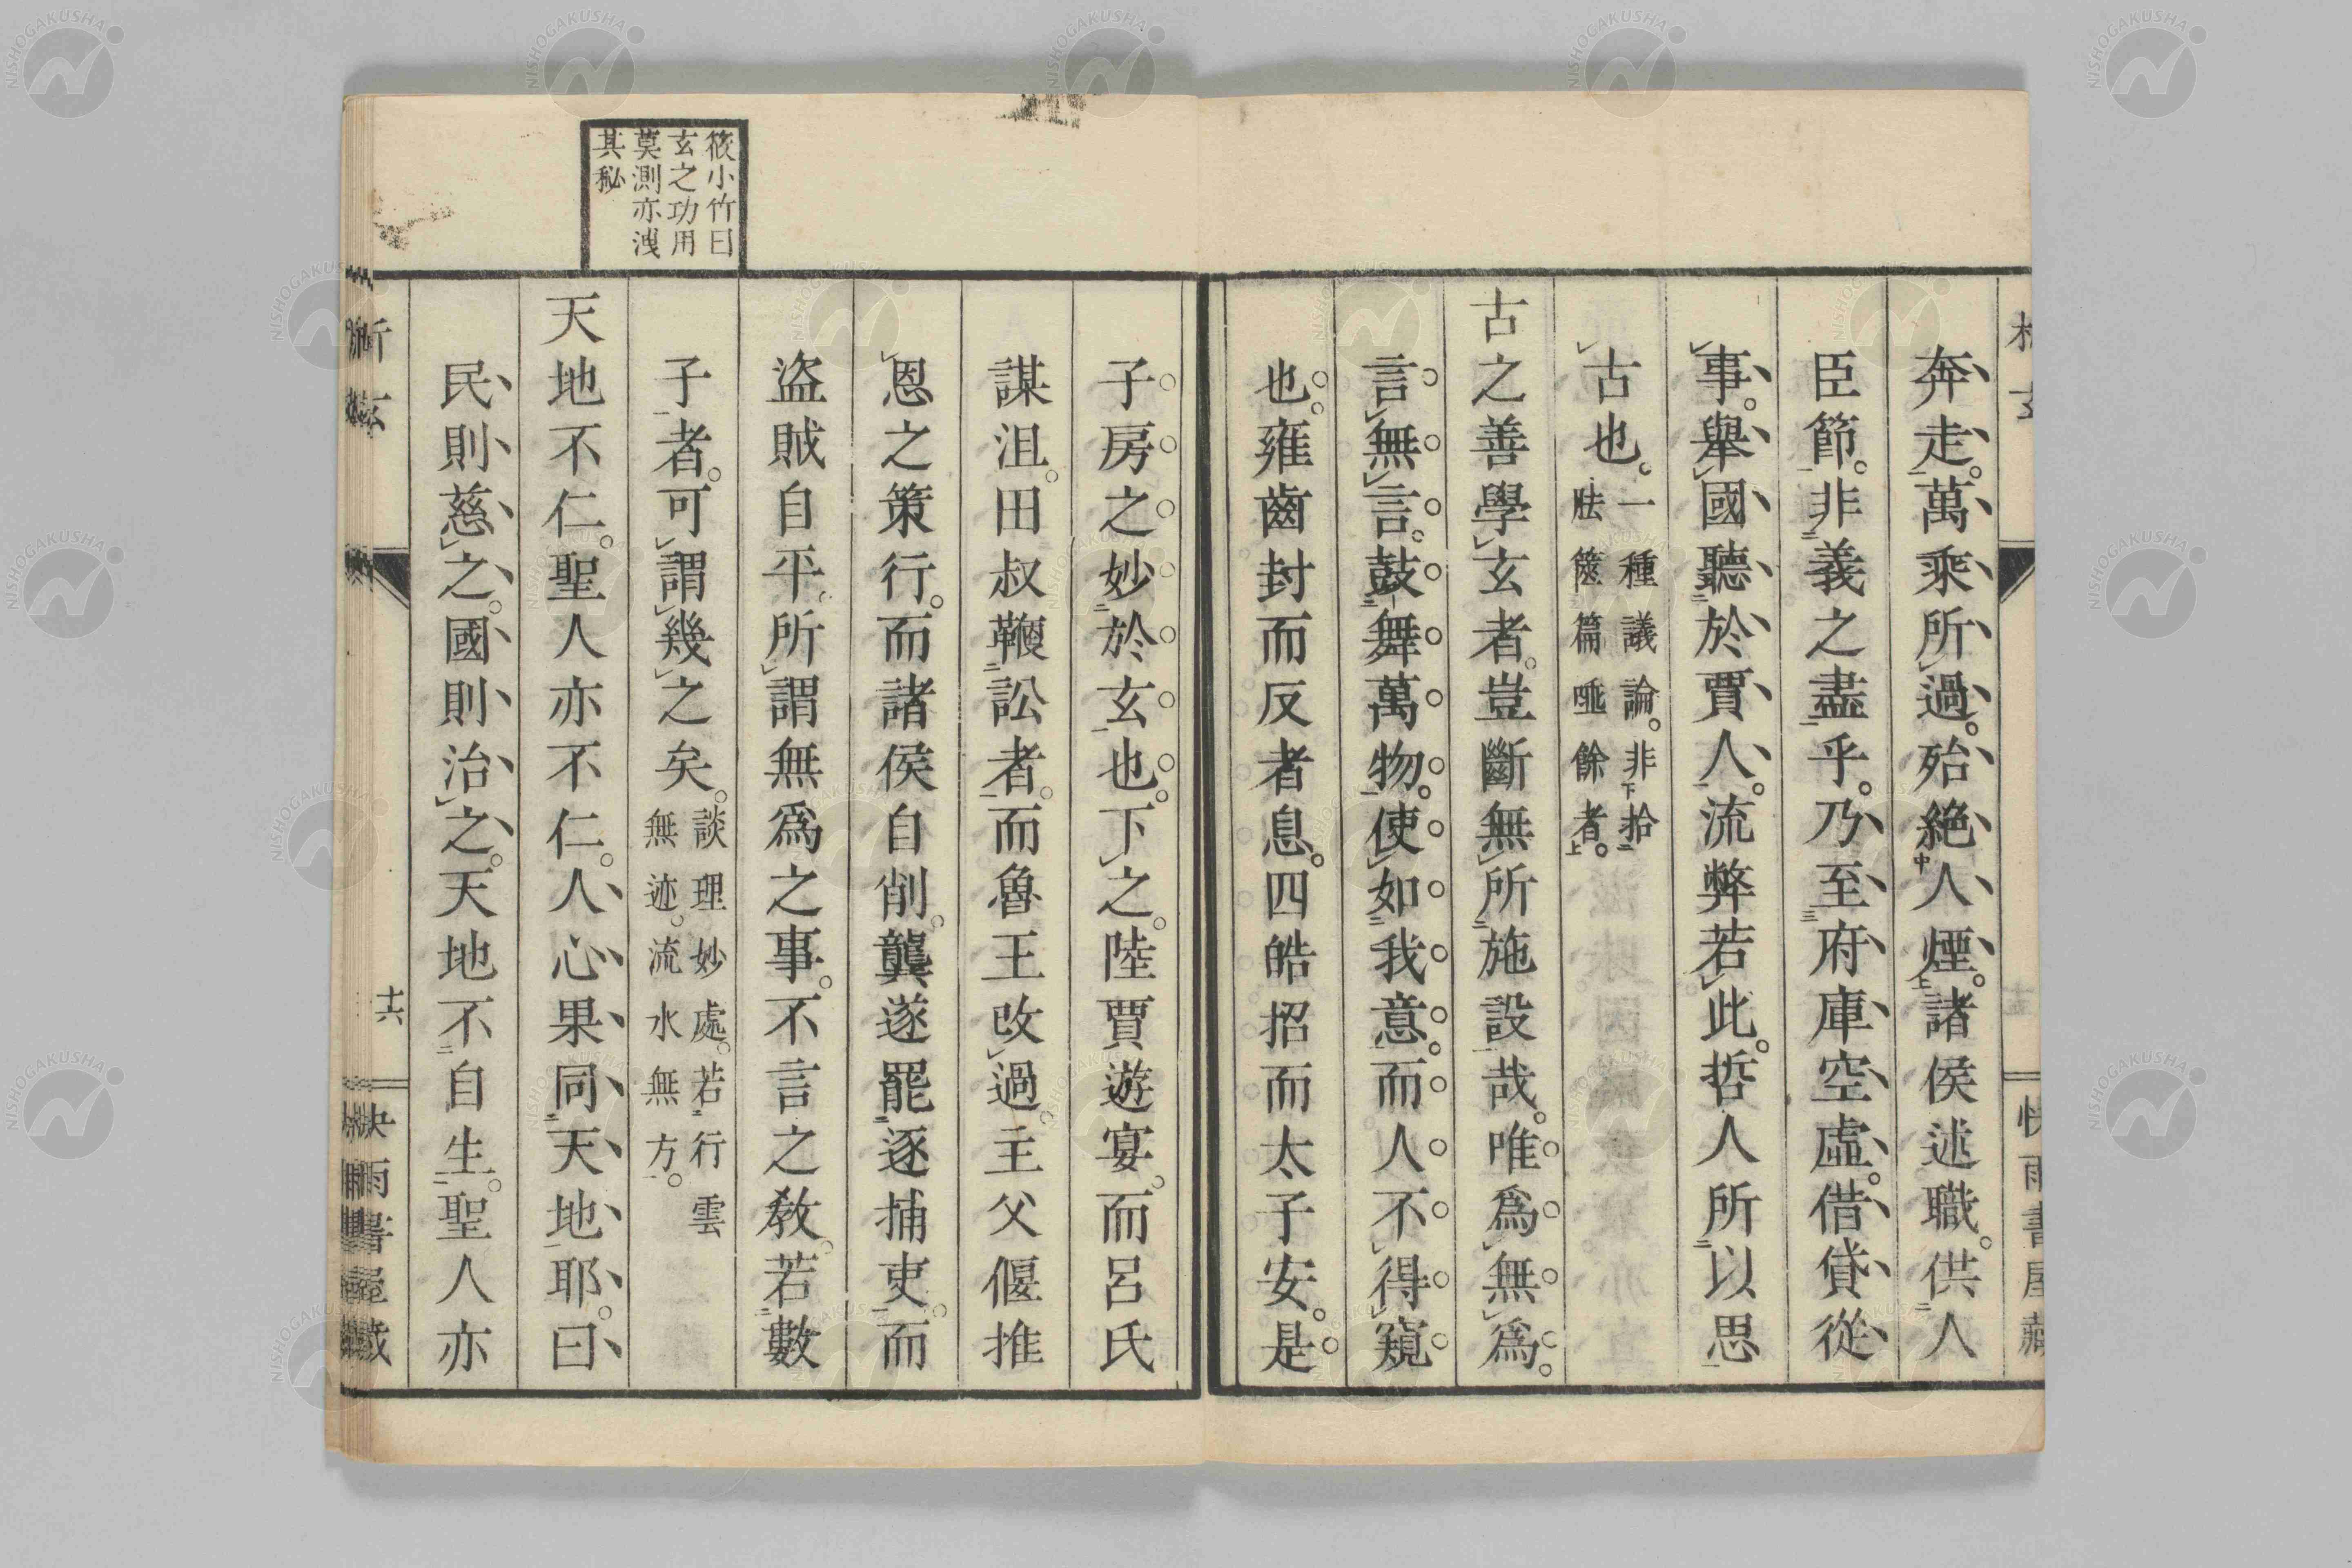 奔走。萬乘所過。殆絶人煙。諸侯述職。供人
臣節。非義之盡乎。乃至府庫空虛。借貸從
事。擧國聽於賈人。流弊若此。哲人所以思
古也。一種議論。非拾
胠篋篇唾餘者。
古之善學玄者。豈斷無所施設哉。唯爲無爲。
言無言。鼓舞萬物。使如我意。而人不得窺
也。雍齒封而反者息。四皓招而太子安。是
子房之妙於玄也。下之。陸賈遊宴。而呂氏
謀沮。田叔鞭訟者。而魯王改過。主父偃推
恩之策行。而諸侯自削。龔遂罷逐捕吏。而
盜賊自平。所謂無爲之事。不言之敎。若數
子者。可謂幾之矣。談理妙處。若行雲
無迹。流水無方。
天地不仁。聖人亦不仁。人心果同天地耶。曰
民則慈之。國則治之。天地不自生。聖人亦
筱小竹曰
玄之功用
莫測亦洩
其秘
析玄
十六
快雨書屋藏
NISHOGAKUSHA